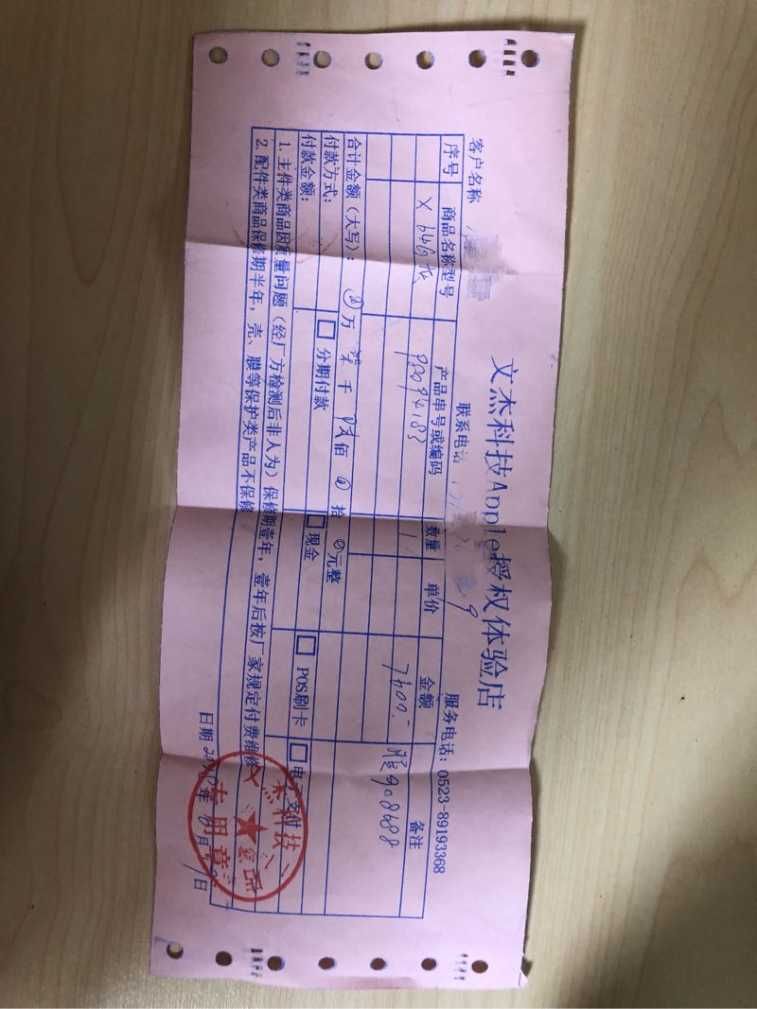 文杰科技Apple授权体验店
客户名称 联系电话 9 服务电话：0523-89193368
序号 商品名称型号 产品串号或编码 数量 单价 金额 备注
X 64G 灰 99094183 1 7400.-
合计金额（大写）： 万 柒 千 佰 拾 元整
付款方式： 分期付款 现金 POS刷卡 电子支付
付款金额：
1. 主件类商品因质量问题（经厂方检测后非人为）保修期壹年，壹年后按厂家规定付费维修
2. 配件类商品保修期半年，壳、膜等保护类产品不保修
日期 年 月 日
杰科技
专用章